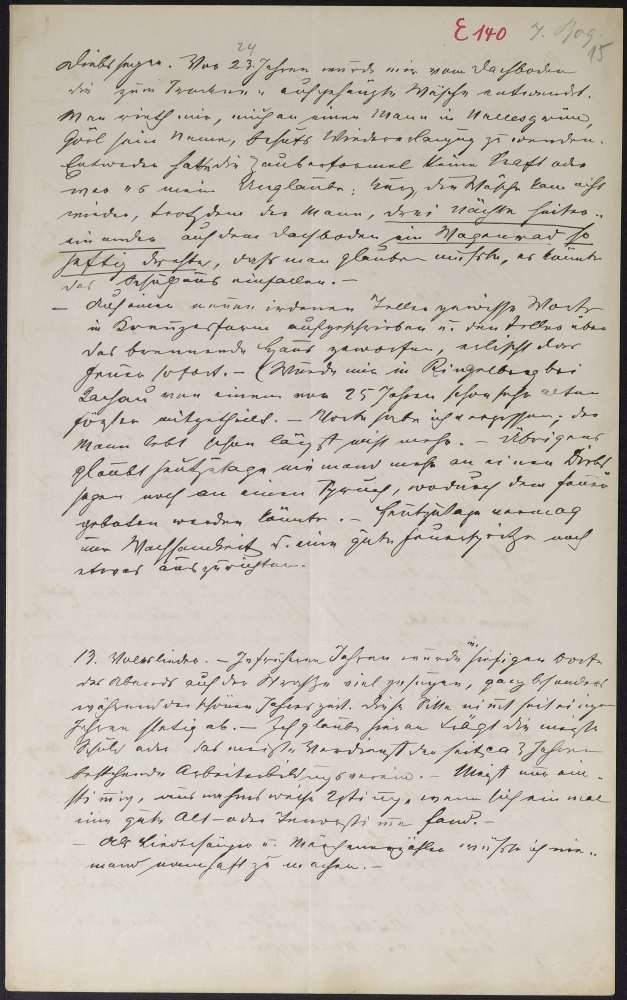 E 140 7. Bog.
15
24
Diebssegen. Vor 23 Jahren wurde mir vom Dachboden
die zum Trocknen aufgehängte Wäsche entwendet.
Man rieth mir, mich an einen Mann in
Görl sein Name, behufs Wiedererlangung zu wenden.
Entweder hatte die Zauberformel keine Kraft oder
war es mein Unglaube; kurz, die Wäsche kam nicht
wieder, trotzdem der Mann, drei Nächte hinter-
einander auf dem Dachboden ein Wagenrad so
heftig drehte, dass man glauben musste, es könnte
das Haus einfallen. –
– Auf einen neuen irdenen Teller gewisse Worte
in Kreuzesform aufgeschrieben u. den Teller über
das brennende Haus geworfen, erlischt das
Feuer sofort. – (Wurde mir in Ringelberg bei
von einem vor 25 Jahren schon sehr alten
Förster mitgetheilt. – Worte habe ich vergessen, der
Mann lebt schon längst nicht mehr. – Übrigens
glaubt heutzutage niemand mehr an einen Diebs-
segen noch an einen Spruch, wodurch dem Feuer
geboten werden könnte. – Heutzutage vermag
nur Wachsamkeit u. eine gute Feuerspritze noch
etwas auszurichten.
13. Volkslieder. – In früheren Jahren wurde im hiesigen Orte
des Abends auf der Strasse viel gesungen, ganz besonders
während der schönen Jahreszeit. Diese Sitte nimmt seit einigen
Jahren stetig ab. – Ich glaube hieran trägt die meiste
Schuld oder das meiste Verdienst der seit ca 3 Jahren
bestehende Arbeiterbildungsverein. – Meist nur ein-
stimmig, ausnahmsweise 2stimmig, wenn sich einmal
eine gute Alt- oder Tenorstimme fand. –
– Als Liedersänger u. Märchenerzähler wüsste ich nie-
mand namhaft zu machen. –